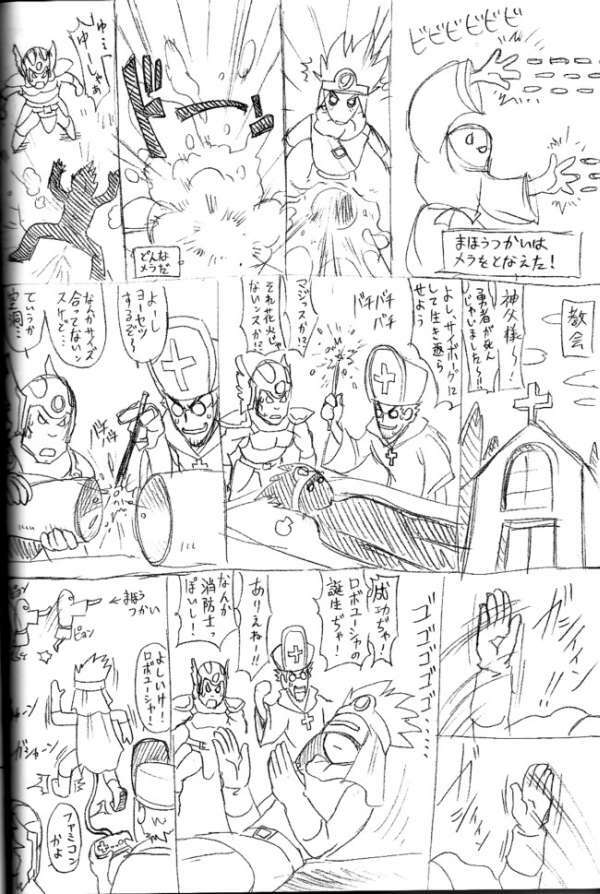 ビビビビビビ
まほうつかいは
メラをとなえた！
ドーン
どんな
メラだ
ゆ…
ゆーしゃぁ
教会
神父様～！
勇者が死ん
じゃいました～!!
よし、サイボーグに
して生き返ら
せよう
バチバチ
バチ
マジッスか!?
それ花火じゃ
ないンスか!?
よーし
ヨーセツ
するぞ～
バチ
バチ
なんかサイズ
合ってない
スけど…
ていうか
空洞…
ゴゴゴゴゴ
成功ぢゃ！
ロボユーシャの
誕生ぢゃ！
ありえねー!!
なんか
消防士っ
ぽいし！
よしいけ！
ロボユーシャ！
←まほう
つかい
ピョン
ガシャーン
ファミコン
かよ